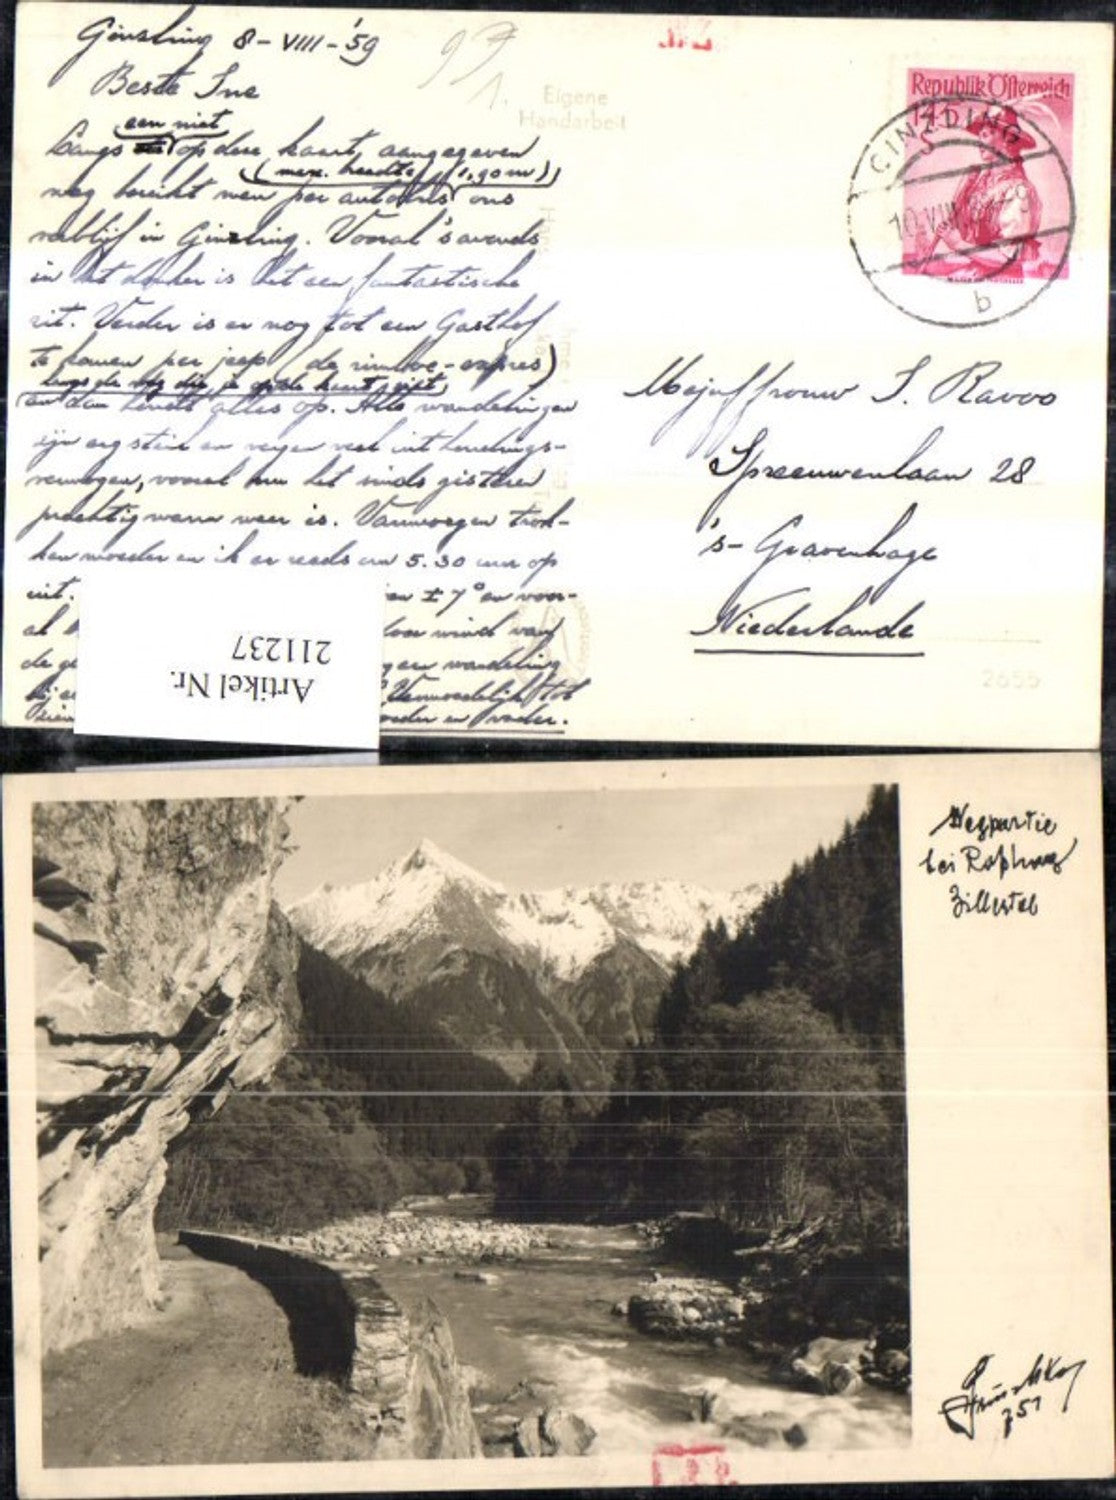 Ginzling 8-VIII-'59
Beste Ine
een niet
Langs op deze kaart, aangegeven
(max. breedte 1,90 m)
weg bereikt men per autobus ons
verblijf in Ginzling. Vooral 's avonds
in het donker is het een fantastische
rit. Verder is er nog tot een Gasthof
te komen per jeep (de rimboe-expres)
langs de weg die je op de kaart ziet
en dan houdt alles op. Alle wandelingen
zijn erg steil en vergen veel uithoudings-
vermogen, vooral nu het sinds gisteren
prachtig warm weer is. Vanmorgen trok-
ken moeder en ik er reeds om 5.30 uur op
uit. ± 7° en voor-
al door wind van
de wandeling
bij Vermoedelijk tot
moeder en vader.
97
1.
Eigene
Handarbeit
Republik Österreich
GINZLING
b
Mejuffrouw I. Ravoo
Spreeuwenlaan 28
's-Gravenhage
Niederlande
2655
Artikel Nr.
211237
Wegpartie
bei Roßhag
Zillertal
751